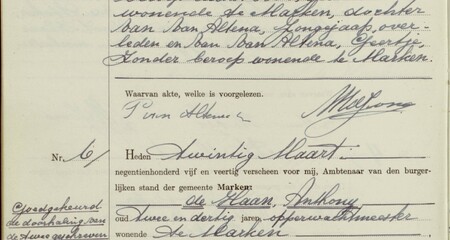 wonende te Marken, dochter
van Van Altena, Jongejaap, over-
leden en van Van Altena, Geertje,
zonder beroep wonende te Marken.
Waarvan akte, welke is voorgelezen.
Nr. 6/ Heden twintig Maart
negentienhonderd vijf en veertig verscheen voor mij, Ambtenaar van den burger-
lijken stand der gemeente Marken:
de Haan, Anthony
oud twee en dertig jaren, opperwachtmeester
wonende te Marken
Goedgekeurd
de doorhaling van
de twee geschreven